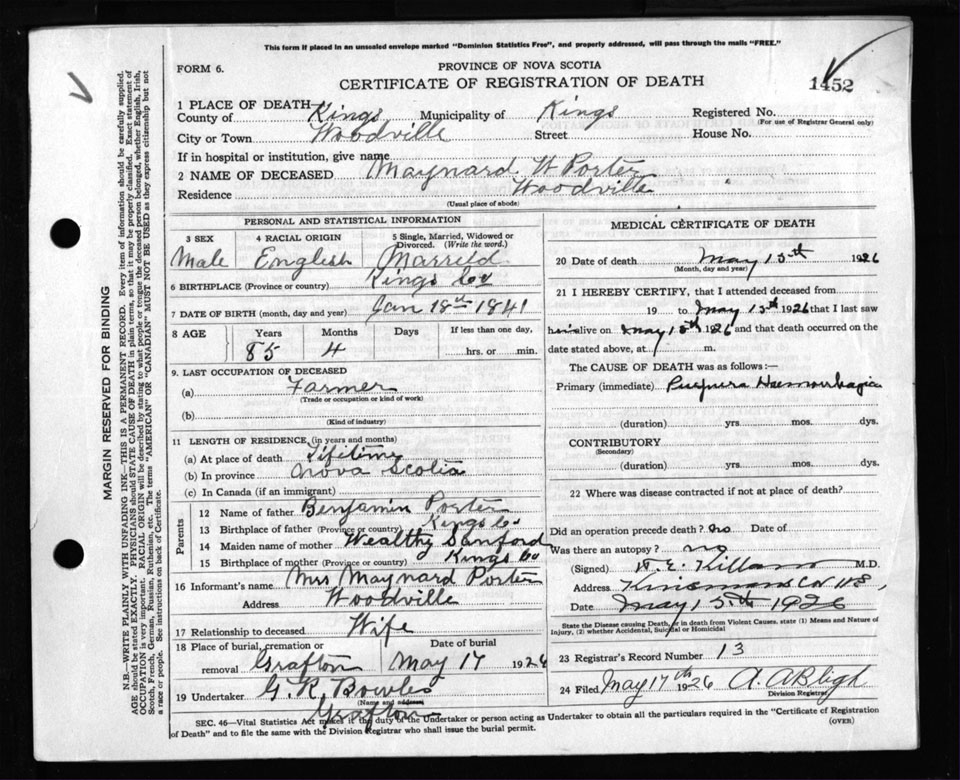 This form if placed in an unsealed envelope marked "Dominion Statistics Free", and properly addressed, will pass through the mails "FREE."
FORM 6.
PROVINCE OF NOVA SCOTIA
CERTIFICATE OF REGISTRATION OF DEATH
1452
1 PLACE OF DEATH
County of Kings Municipality of Kings Registered No.
(For use of Registrar General only)
City or Town Woodville Street House No.
If in hospital or institution, give name
2 NAME OF DECEASED Maynard W Porter
Residence Woodville
(Usual place of abode)
PERSONAL AND STATISTICAL INFORMATION
3 SEX 4 RACIAL ORIGIN 5 Single, Married, Widowed or Divorced. (Write the word.)
Male English Married
6 BIRTHPLACE (Province or country) Kings Co
7 DATE OF BIRTH (month, day and year) Jan 18th 1841
8 AGE Years Months Days If less than one day,
85 4 hrs. or min.
9. LAST OCCUPATION OF DECEASED
(a) Farmer
(Trade or occupation or kind of work)
(b)
(Kind of industry)
11 LENGTH OF RESIDENCE (in years and months)
(a) At place of death Lifetime
(b) In province Nova Scotia
(c) In Canada (if an immigrant)
Parents
12 Name of father Benjamin Porter
13 Birthplace of father (Province or country) Kings Co
14 Maiden name of mother Wealthy Sanford
15 Birthplace of mother (Province or country) Kings Co
16 Informant's name Mrs Maynard Porter
Address Woodville
17 Relationship to deceased Wife
18 Place of burial, cremation or removal Grafton Date of burial May 17 1926
19 Undertaker G. R. Bowles
(Name and address)
Grafton
MEDICAL CERTIFICATE OF DEATH
20 Date of death May 15th 1926
(Month, day and year)
21 I HEREBY CERTIFY, that I attended deceased from
19 to May 15th 1926 that I last saw
him alive on May 15th 1926 and that death occurred on the
date stated above, at m.
The CAUSE OF DEATH was as follows:—
Primary (immediate) Purpura Haemorrhagica
(duration) yrs. mos. dys.
CONTRIBUTORY
(Secondary)
(duration) yrs. mos. dys.
22 Where was disease contracted if not at place of death?
Did an operation precede death? no Date of
Was there an autopsy? no
(Signed) Killam M.D.
Address
Date May 15th 1926
State the Disease causing Death, or in death from Violent Causes, state (1) Means and Nature of
Injury, (2) whether Accidental, Suicidal or Homicidal
23 Registrar's Record Number 13
24 Filed May 17th 1926 A. A Bligh
Division Registrar
SEC. 46—Vital Statistics Act makes it the duty of the Undertaker or person acting as Undertaker to obtain all the particulars required in the "Certificate of Registration
of Death" and to file the same with the Division Registrar who shall issue the burial permit. (OVER)
MARGIN RESERVED FOR BINDING
N.B.—WRITE PLAINLY WITH UNFADING INK—THIS IS A PERMANENT RECORD. Every item of information should be carefully supplied.
AGE should be stated EXACTLY. PHYSICIANS should STATE CAUSE OF DEATH in plain terms, so that it may be properly classified. Exact statement of
OCCUPATION is very important. RACIAL ORIGIN will be described by stating to what people or tongue the deceased person belonged, whether English, Irish,
Scotch, French, German, Russian, Ruthenian, etc. The terms "AMERICAN" or "CANADIAN" MUST NOT BE USED as they express citizenship but not
a race or people. See instructions on back of Certificate.